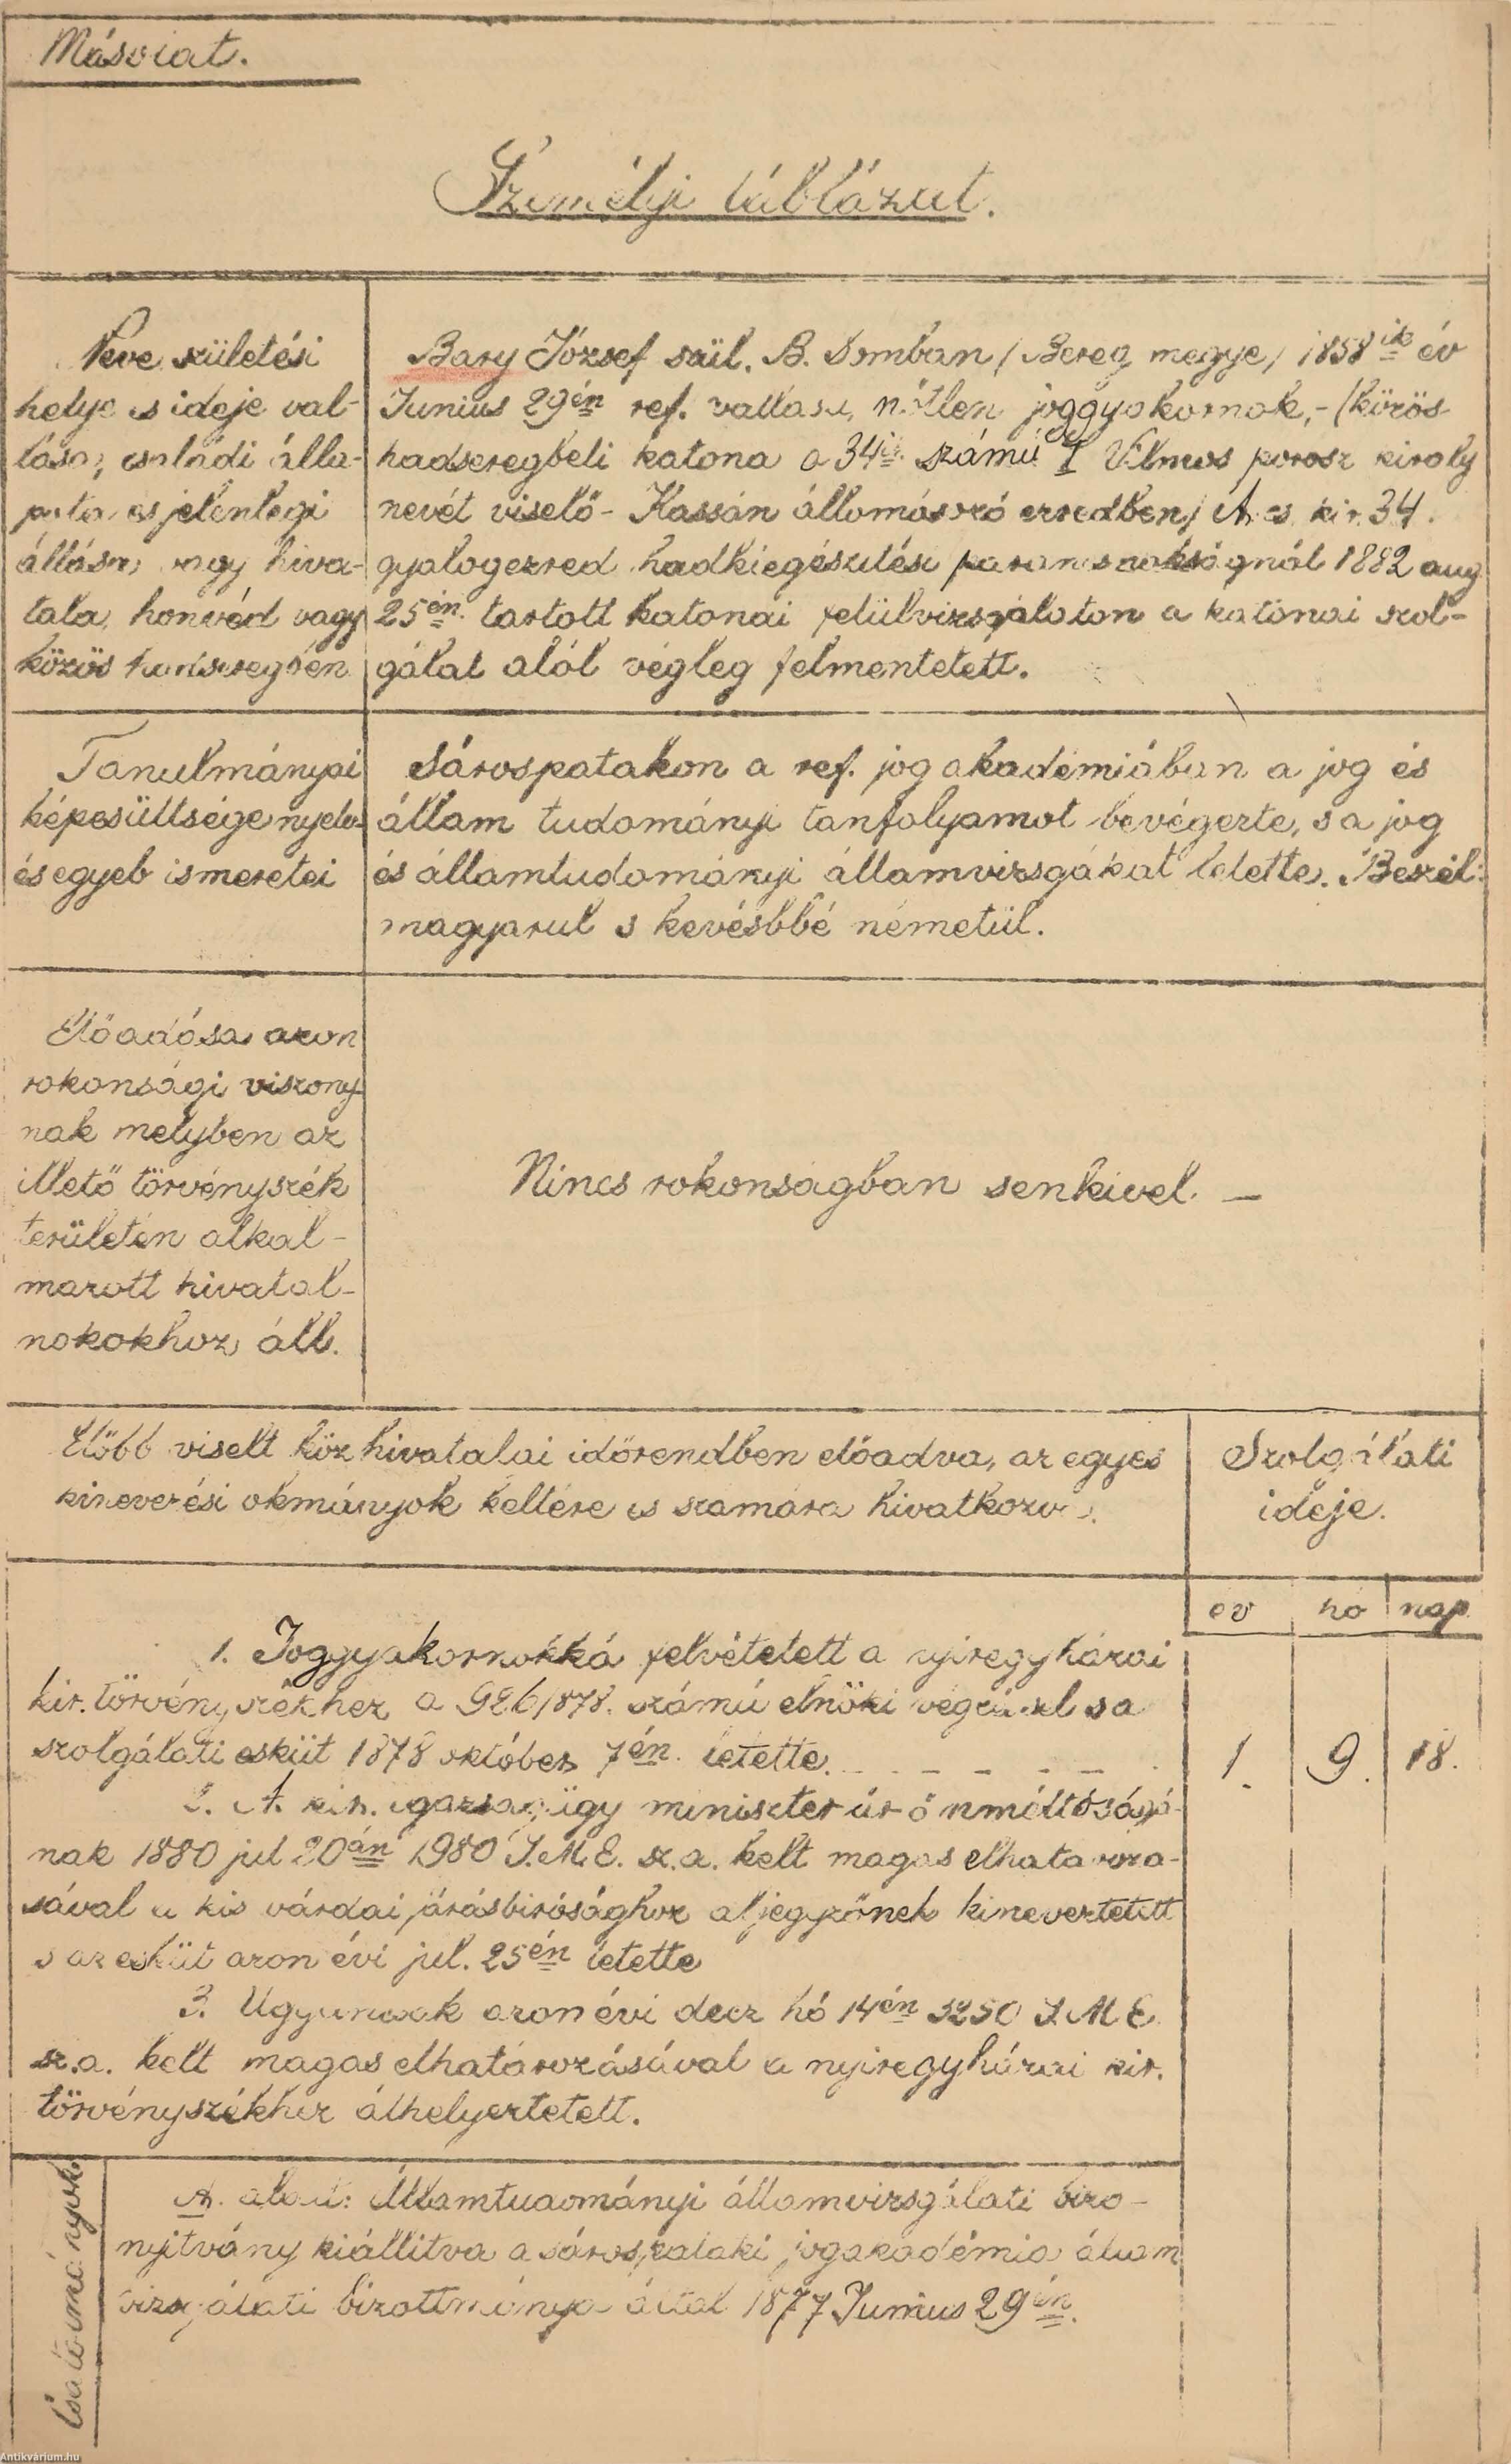 Másolat.
Személyi táblázat.
Neve születési
helye s ideje val-
lása, családi álla-
pota és jelenlegi
állása, vagy hiva-
tala, honvéd vagy
közös hadseregben
Bary József szül. B. Somban / Bereg megye / 1858ik év
Junius 29én ref. vallásu, nőtlen joggyakornok, - (közös
hadseregbeli katona a 34ik számú I Vilmos porosz király
nevét viselő - Kassán állomásozó ezredben) A cs. kir. 34.
gyalogezred hadkiegészitési parancsnokságnál 1882 aug
25én tartott katonai felülvizsgálaton a katonai szol-
gálat alól végleg felmentetett.
Tanulmányai
képesültsége nyelv
és egyéb ismeretei
Sárospatakon a ref. jog akadémiában a jog és
állam tudományi tanfolyamot bevégezte, s a jog
és államtudományi államvizsgákat letette. Beszél:
magyarul s kevésbbé németül.
Előadása azon
rokonsági viszony-
nak melyben az
illető törvényszék
területén alkal-
mazott hivatal-
nokokhoz áll.
Nincs rokonságban senkivel. -
Előbb viselt köz hivatalai időrendben előadva, az egyes
kinevezési okmányok keltére és számára hivatkozva.
Szolgálati
ideje.
év hó nap
1. Joggyakornokká felvétetett a nyiregyházai
kir. törvényszékhez a 926/1878. számú elnöki végzéssel s a
szolgálati esküt 1878 október 7én letette. - - - - - -
1. 9. 18.
2. A kir. igazságügy miniszter úr ő nméltóságá-
nak 1880 jul 20án 1980 I.M.E. sz. a. kelt magas elhatározá-
sával a kis várdai járásbirósághoz aljegyzőnek kineveztetett
s az esküt azon évi jul. 25én letette
3. Ugyancsak azon évi decz hó 14én 3250 I. M E.
sz. a. kelt magas elhatározásával a nyiregyházai kir.
törvényszékhez áthelyeztetett.
Csatományok
A. alatt: Államtudományi államvizsgálati bizo-
nyitvány kiállitva a sárospataki jogakadémia állam
vizsgálati bizottmánya által 1877 Junius 29én.
Antikvárium.hu